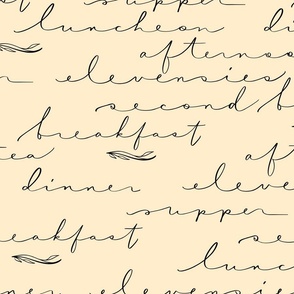 supper
luncheon di
afternoo
er elevensies
second b
breakfast
tea aft
dinner eleve
supper
eakfast se
lunc
ner elevensie